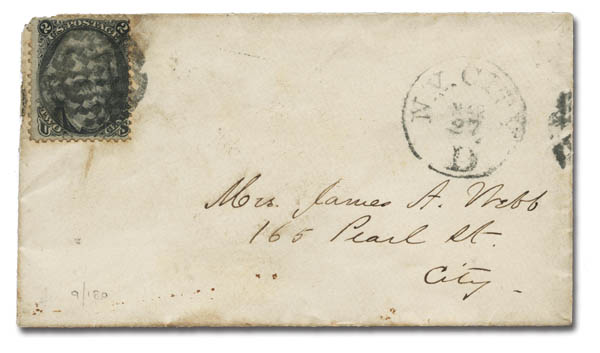 2 U.S. POSTAGE 2
N.Y. CITY
27
D
Mrs. James A. Webb
165 Pearl St.
City
9/180